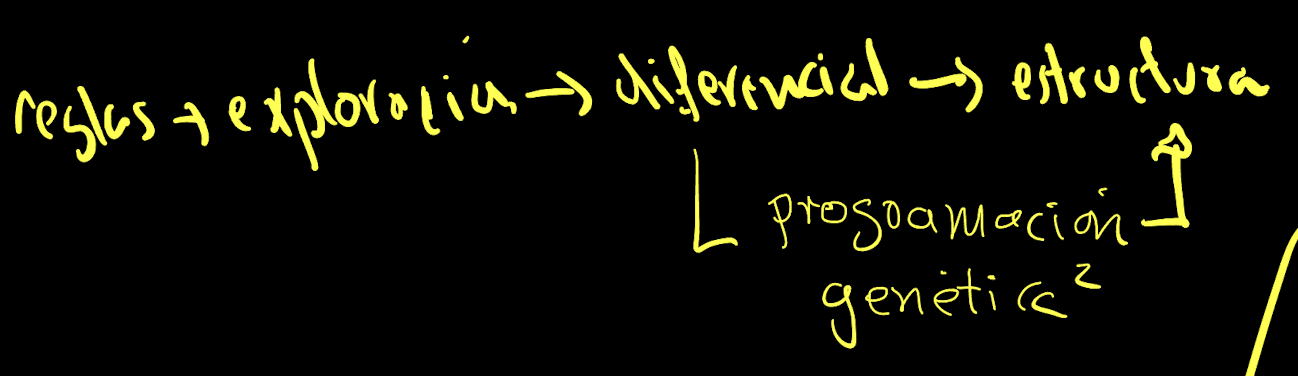 reglas → exploración → diferencial → estructura
programación
genética²